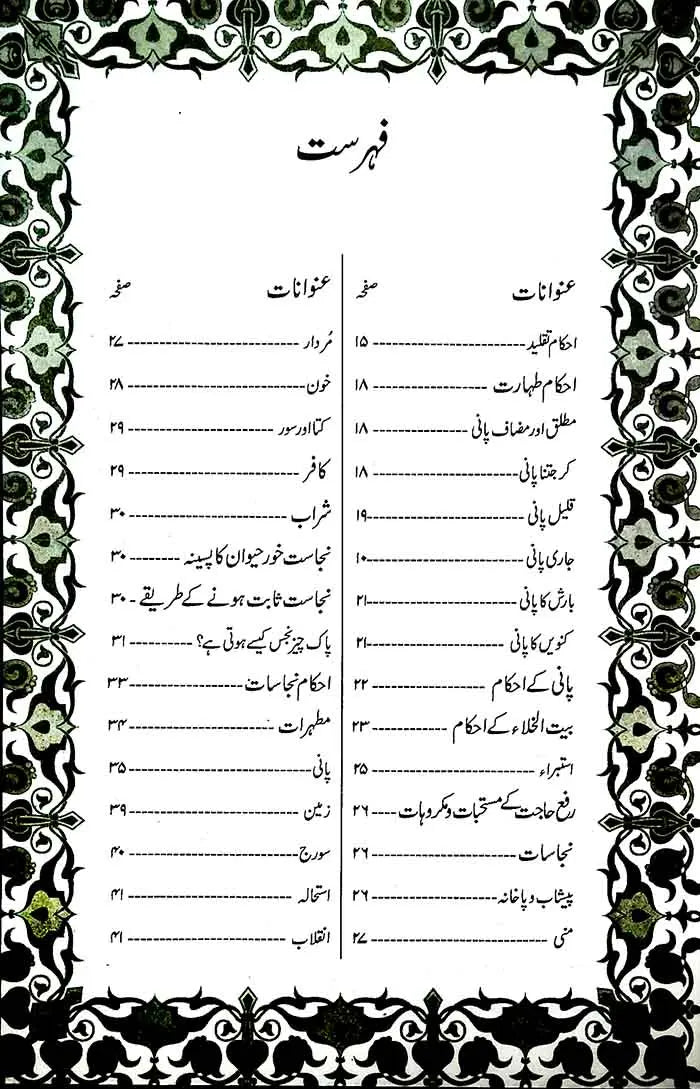 فہرست
عنوانات صفحہ
احکام تقلید ۱۵
احکام طہارت ۱۸
مطلق اور مضاف پانی ۱۸
کر جتنا پانی ۱۸
قلیل پانی ۱۹
جاری پانی ۱۰
بارش کا پانی ۲۱
کنویں کا پانی ۲۱
پانی کے احکام ۲۲
بیت الخلاء کے احکام ۲۳
استبراء ۲۵
رفع حاجت کے مستحبات و مکروہات ۲۶
نجاسات ۲۶
پیشاب و پاخانہ ۲۶
منی ۲۷
عنوانات صفحہ
مُردار ۲۷
خون ۲۸
کتا اور سور ۲۹
کافر ۲۹
شراب ۳۰
نجاست خور حیوان کا پسینہ ۳۰
نجاست ثابت ہونے کے طریقے ۳۰
پاک چیز نجس کیسے ہوتی ہے؟ ۳۱
احکام نجاسات ۳۳
مطہرات ۳۴
پانی ۳۵
زمین ۳۹
سورج ۴۰
استحالہ ۴۱
انقلاب ۴۱